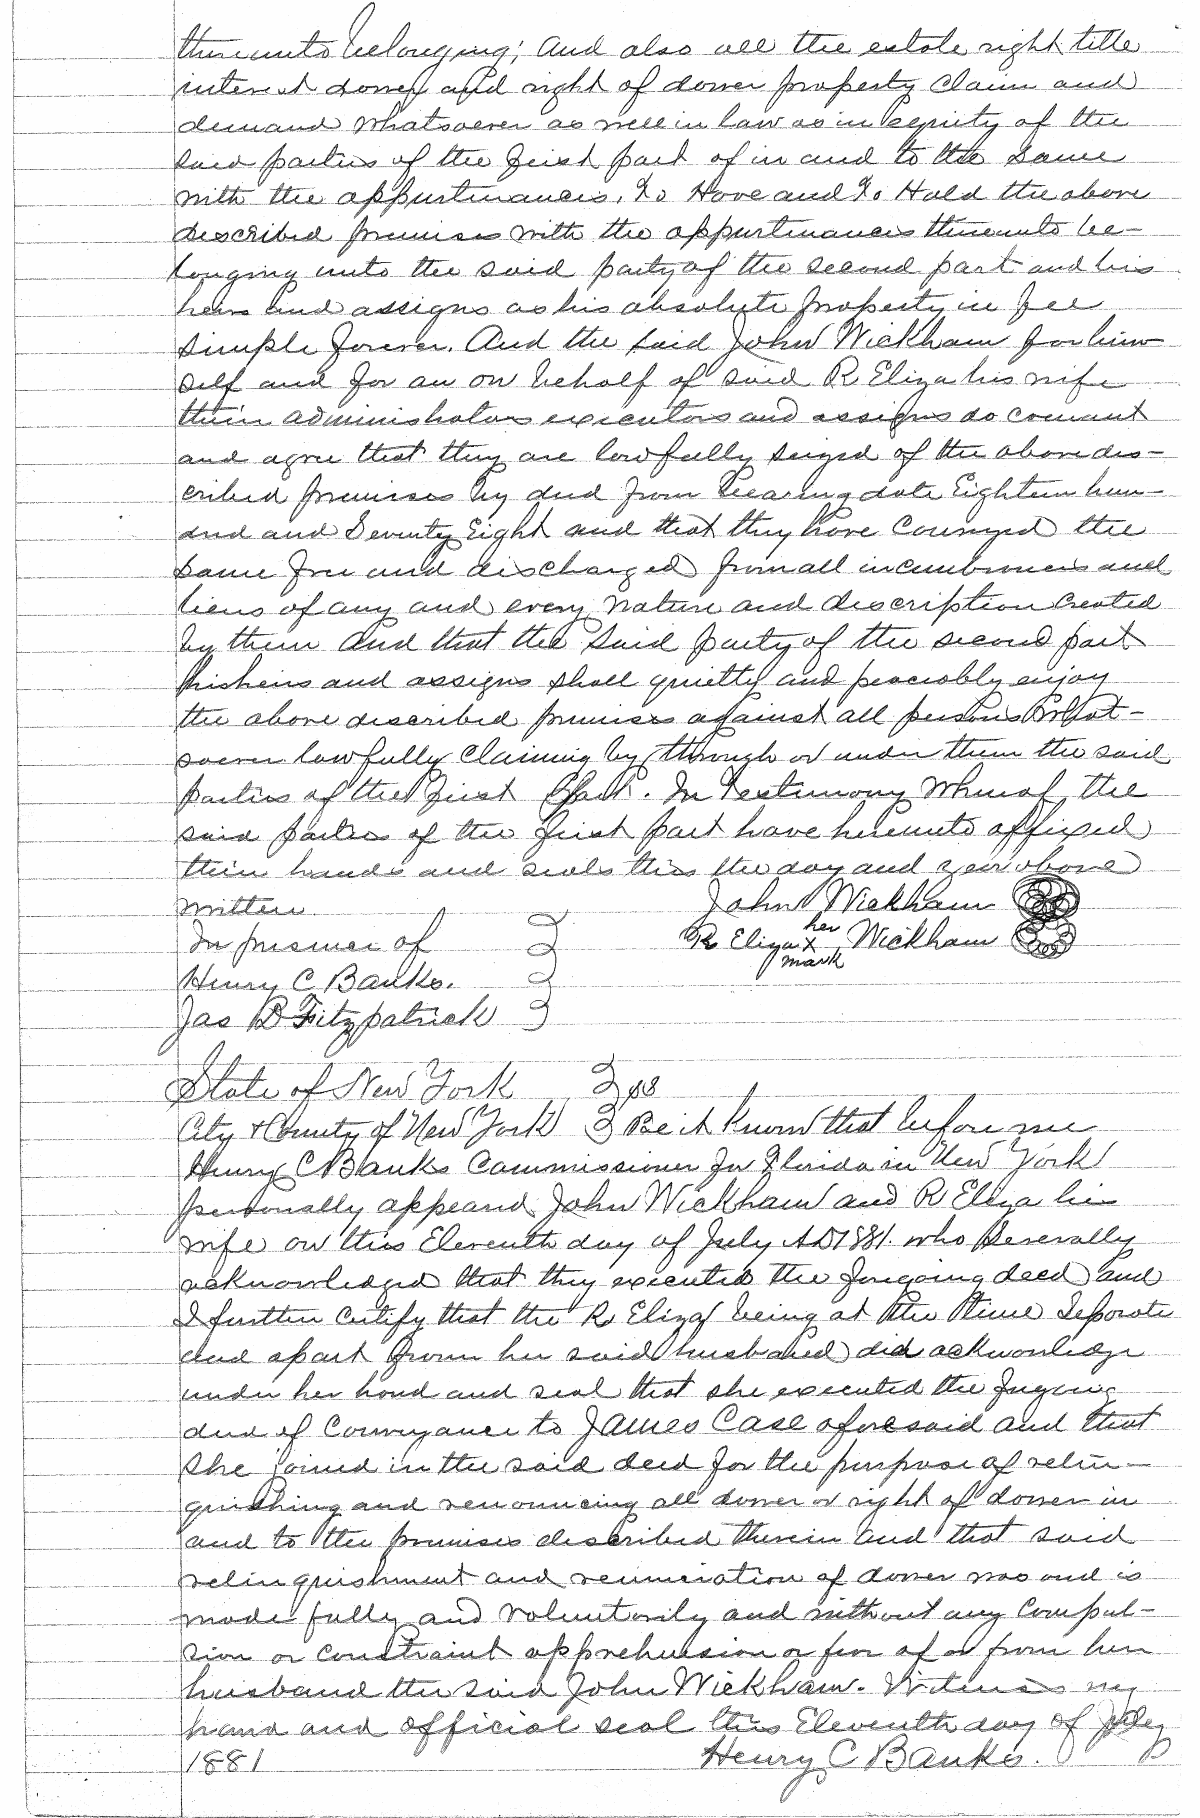 thereunto belonging; And also all the estate right title
interest dower and right of dower property claim and
demand whatsoever as well in law as in equity of the
said parties of the first part of in and to the same
with the appurtenances, To Have and To Hold the above
described premises with the appurtenances thereunto be-
longing unto the said party of the second part and his
heirs and assigns as his absolute property in fee
simple forever. And the said John Wickham for him
self and for an on behalf of said R Eliza his wife
their administrators executors and assigns do covenant
and agree that they are lawfully seized of the above des-
cribed premises by deed from bearing date Eighteen hun-
dred and Seventy Eight and that they have conveyed the
same free and discharged from all incumbrances and
liens of any and every nature and description created
by them And that the said party of the second part
his heirs and assigns shall quietly and peaceably enjoy
the above described premises against all persons what-
soever lawfully claiming by through or under them the said
parties of the first part. In Testimony Whereof the
said parties of the first part have hereunto affixed
their hands and seals this the day and year above
written John Wickham
In presence of R Eliza her X mark Wickham
Henry C Banks.
Jas D Fitzpatrick
State of New York } ss
City & County of New York } Be it known that before me
Henry C Banks Commissioner for Florida in New York
personally appeared John Wickham and R Eliza his
wife on this Eleventh day of July AD 1881 who severally
acknowledged that they executed the foregoing deed and
I further certify that the R Eliza being at the time separate
and apart from her said husband did acknowledge
under her hand and seal that she executed the foregoing
deed of conveyance to James Case aforesaid and that
she joined in the said deed for the purpose of relin-
quishing and renouncing all dower or right of dower in
and to the premises described therein and that said
relinquishment and renunciation of dower was and is
made fully and voluntarily and without any compul-
sion or constraint apprehension or fear of or from her
husband the said John Wickham. Witness my
hand and official seal this Eleventh day of July
1881 Henry C Banks.